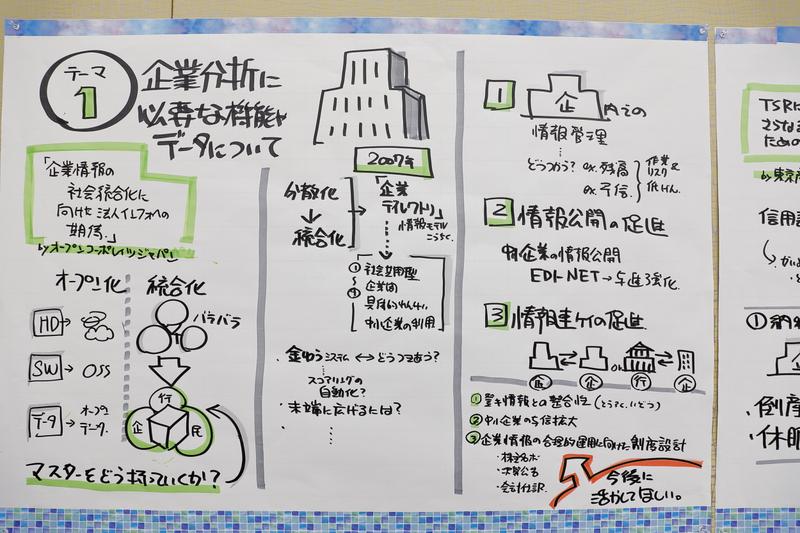 テーマ
1
企業分析に
必要な機能や
データについて
「企業情報の
社会統合化に
向けた法人インフォへの
期待」
byオープンコーポレイツジャパン
オープン化
統合化
HD
バラバラ
SW
OSS
データ
オープン
データ
行
企
民
マスターをどう持っていくか?
2007年
分散化
統合化
「企業
ディレクトリ」
情報モデル
こうちく
① 社会基盤型
企業
④
中小企業の利用
・金ゆうシステム ↔ どうつきあう?
スコアリングの
自動化?
・末端に広げるには?
1
企
内での
情報管理
どうつかう? ex.残高
ex.与信
作業&
リスク
低げん
2 情報公開の促進
中小企業の情報公開
EDI-NET→与進強化
3 情報連ケイの促進
or
企
企
行
企
① 業キ情報との整合性
② 中小企業の与信拡大
③ 企業情報の合理的運用に向けた制度設計
・株主名ボ
・決算公告
・会計仕訳
今後に
活かしてほしい。
TSRに
さらなる
ための
by東京
信用
①
・倒産
・休眠